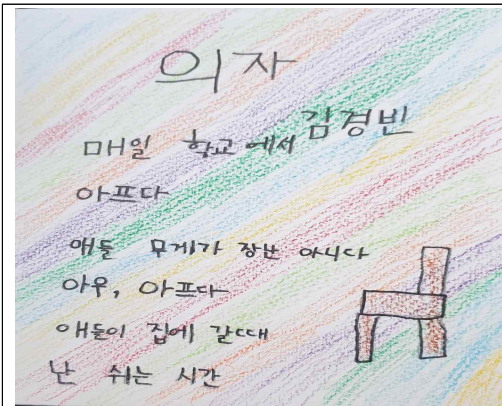 의자
김경빈
매일 학교에서
아프다
애들 무게가 장난 아니다
아우, 아프다
애들이 집에 갈때
난 쉬는 시간